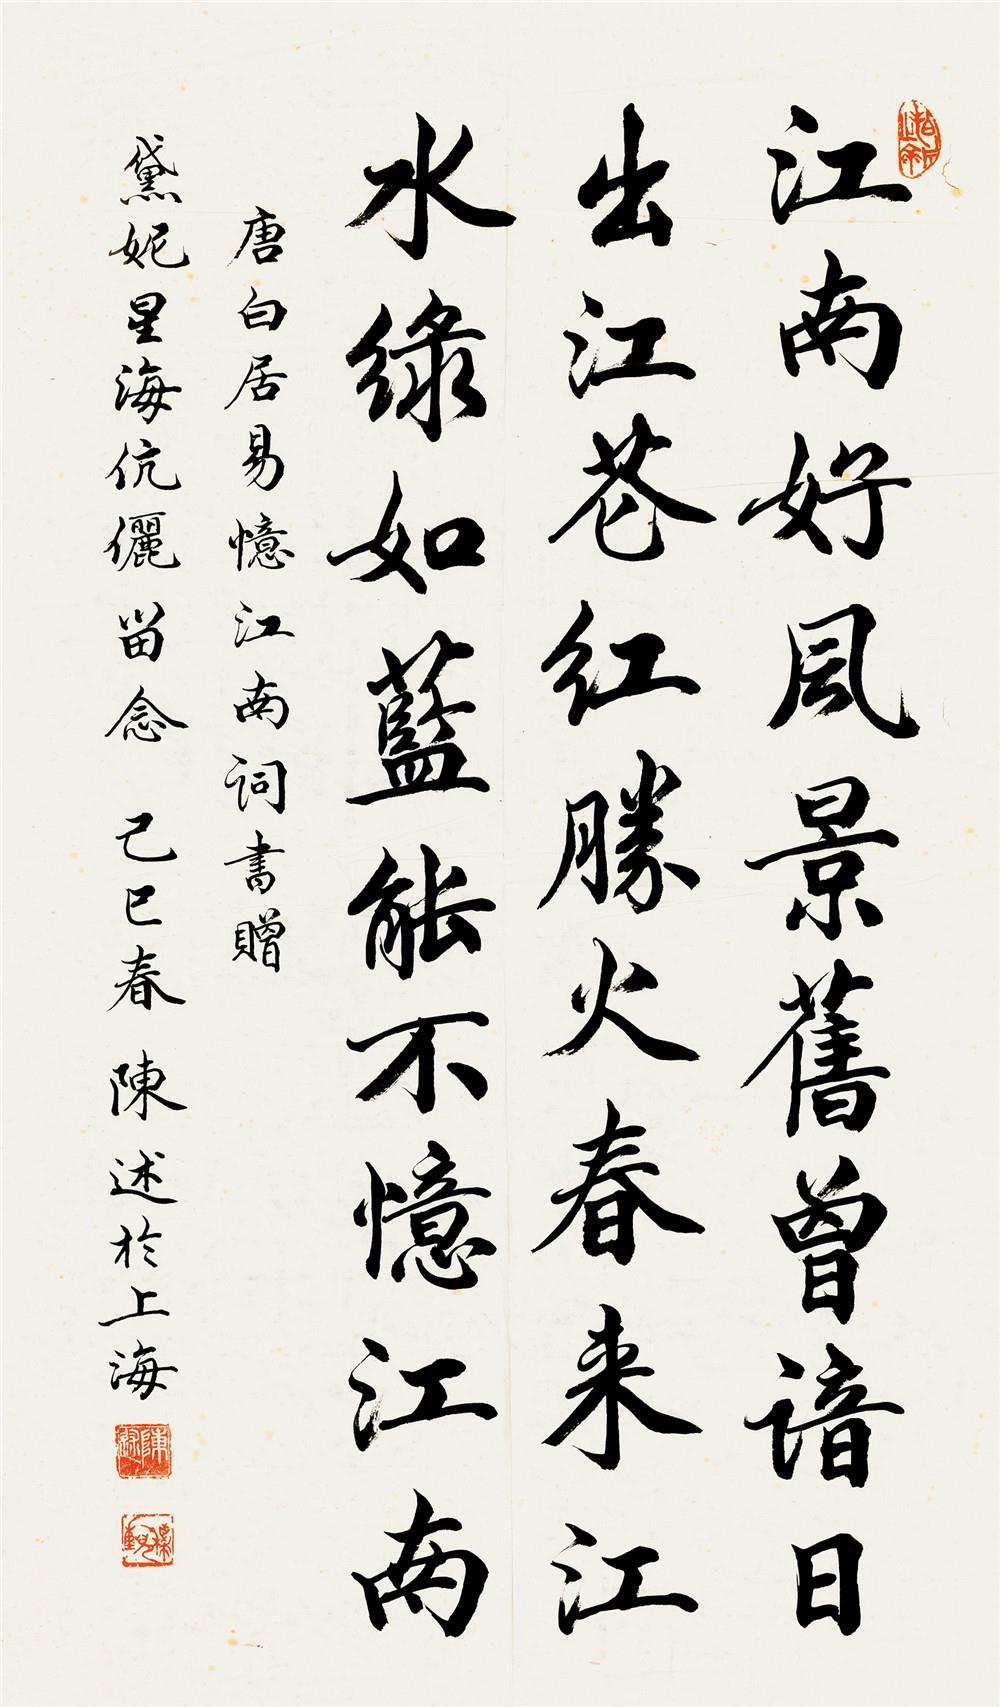 江南好風景舊曾諳日
出江花紅勝火春来江
水綠如藍能不憶江南
唐白居易憶江南詞書贈
黛妮星海伉儷留念 己巳春 陳述於上海
陳述